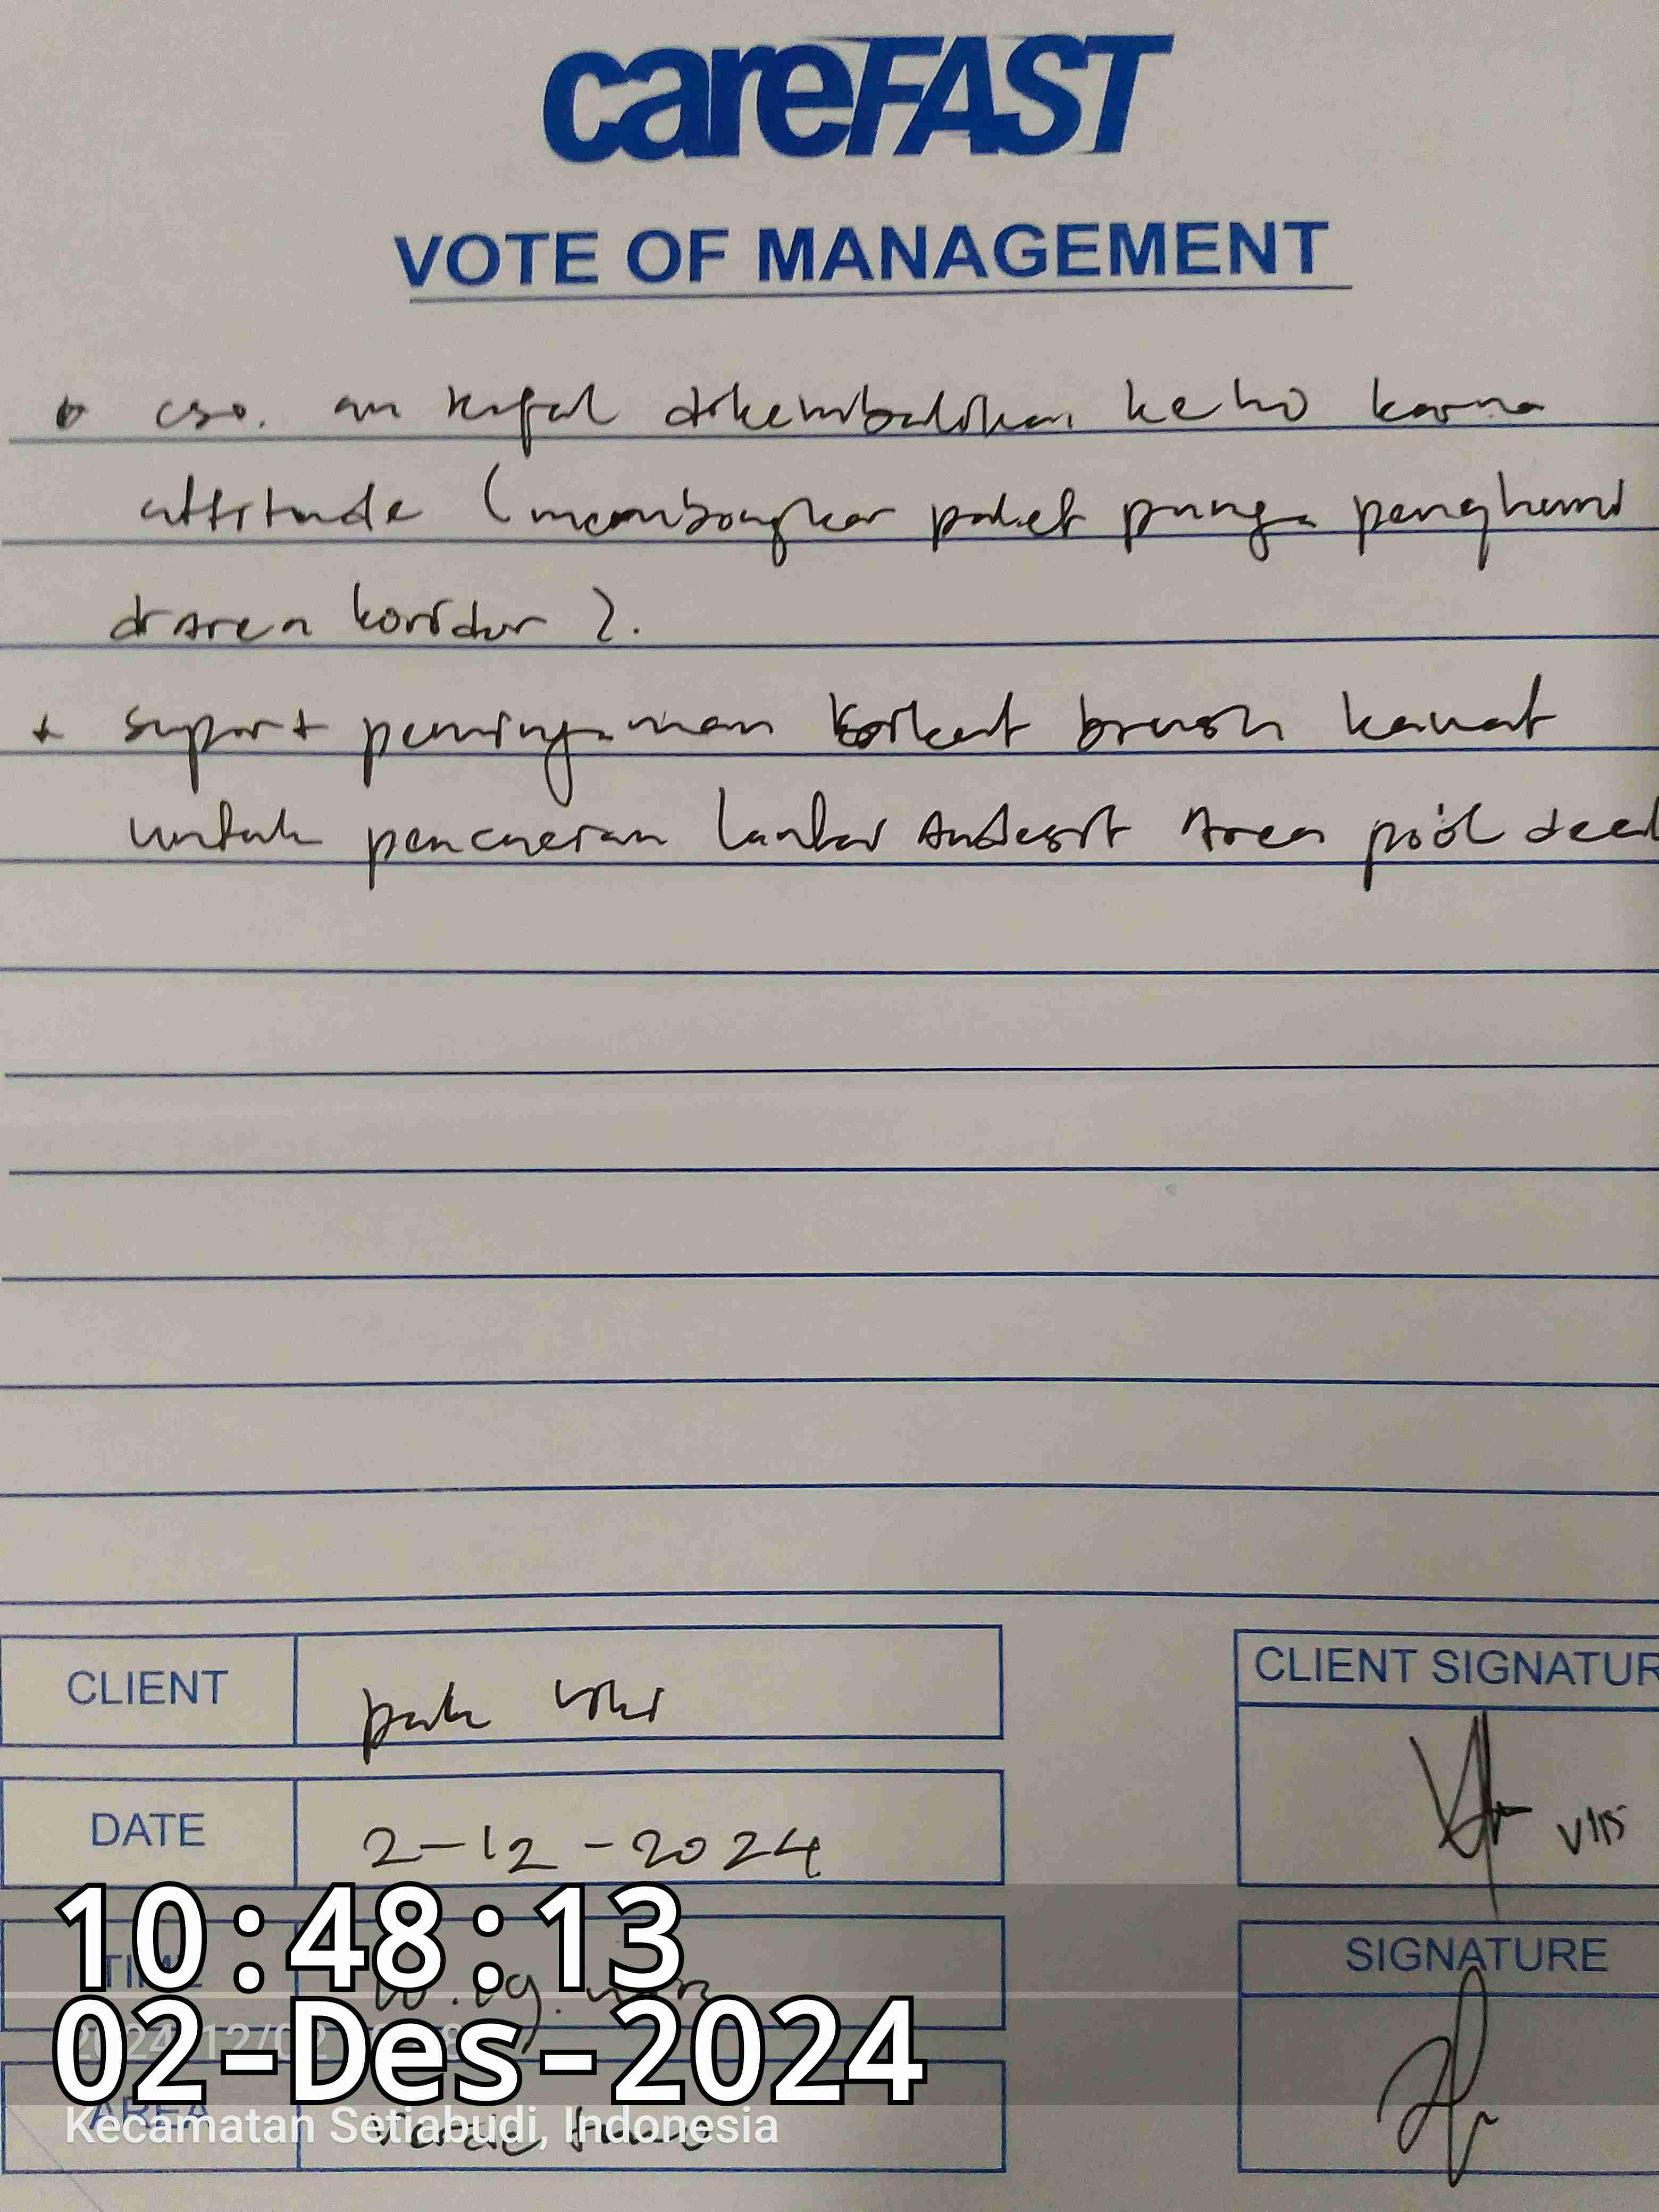 careFAST
VOTE OF MANAGEMENT
cso. an dikembalikan ke ho karna
attitude (membongkar paket punya penghuni
diarea koridor ).
+ suport peminjaman brush kawat
untuk pencucian lantai Andesit Area pool deck
CLIENT
pak
CLIENT SIGNATUR
DATE
2-12-2024
10:48:13
TIME
SIGNATURE
02-Des-2024
AREA
Kecamatan Setiabudi, Indonesia